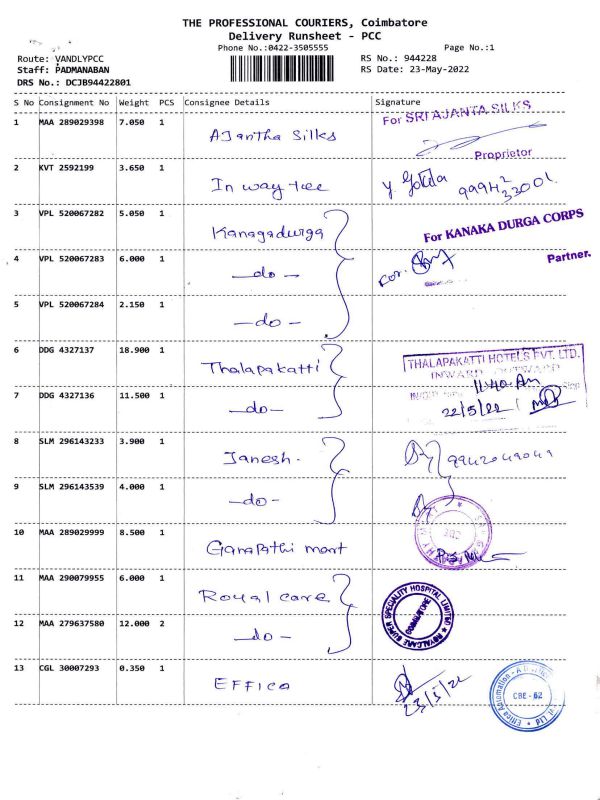 THE PROFESSIONAL COURIERS, Coimbatore
Delivery Runsheet - PCC
Phone No.:0422-3505555 Page No.:1
Route: VANDLYPCC RS No.: 944228
Staff: PADMANABAN RS Date: 23-May-2022
DRS No.: DCJB94422801
S No Consignment No Weight PCS Consignee Details Signature
1 MAA 289029398 7.050 1 AJantha Silks For SRI AJANTA SILKS
Proprietor
2 KVT 2592199 3.650 1 In way tee
3 VPL 520067282 5.050 1 Kanagadurga For KANAKA DURGA CORPS
Partner.
4 VPL 520067283 6.000 1 -do- For.
5 VPL 520067284 2.150 1 -do-
6 DDG 4327137 18.900 1 Thalapakatti THALAPAKATTI HOTELS PVT. LTD.
INWARD / OUTWARD
11:40 Am
7 DDG 4327136 11.500 1 -do- 22/5/22
8 SLM 296143233 3.900 1 Janesh. 9942049049
9 SLM 296143539 4.000 1 -do-
10 MAA 289029999 8.500 1 Ganapathi mart
11 MAA 290079955 6.000 1 Royal care ROYALCARE SUPER SPECIALITY HOSPITAL LIMITED
COIMBATORE
12 MAA 279637580 12.000 2 -do-
13 CGL 30007293 0.350 1 EFFica 23/5/22
CBE - 62